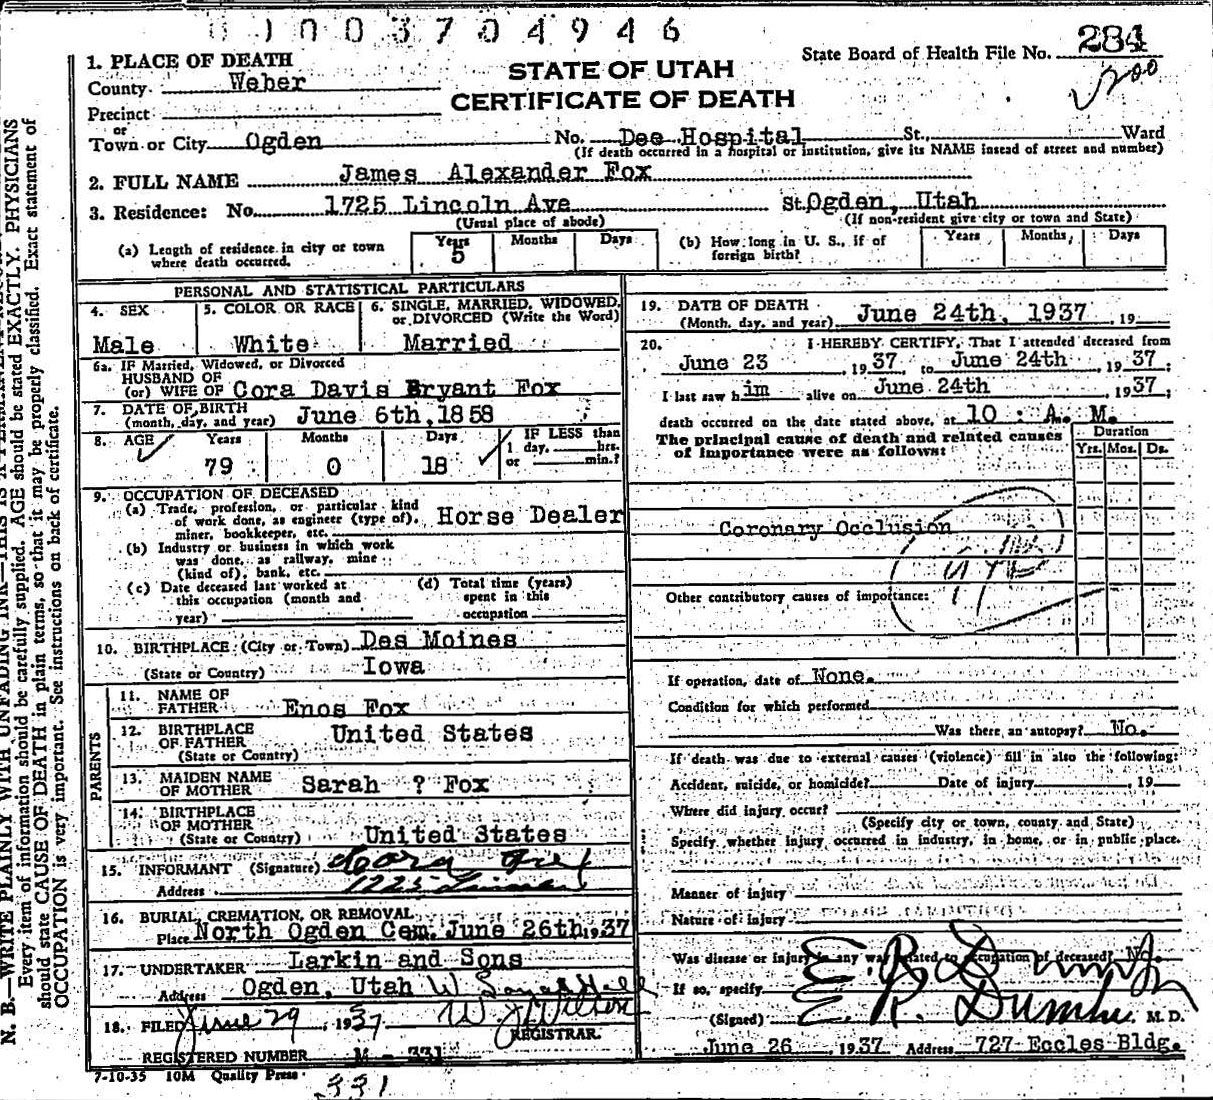 0100370 4946
State Board of Health File No. 284
1. PLACE OF DEATH
County Weber
STATE OF UTAH
CERTIFICATE OF DEATH
200
Precinct
or
Town or City Ogden No. Dee Hospital St. Ward
(If death occurred in a hospital or institution, give its NAME insead of street and number)
2. FULL NAME James Alexander Fox
3. Residence: No. 1725 Lincoln Ave St. Ogden, Utah
(Usual place of abode) (If non-resident give city or town and State)
(a) Length of residence in city or town where death occurred. Years 5 Months Days (b) How long in U. S., if of foreign birth? Years Months Days
PERSONAL AND STATISTICAL PARTICULARS
4. SEX 5. COLOR OR RACE 6. SINGLE, MARRIED, WIDOWED, or DIVORCED (Write the Word)
Male White Married
6a. IF Married, Widowed, or Divorced
HUSBAND OF
(or) WIFE OF Cora Davis Bryant Fox
7. DATE OF BIRTH
(month, day, and year) June 6th, 1858
8. AGE Years Months Days IF LESS than
1 day, hrs.
or min.?
79 0 18
9. OCCUPATION OF DECEASED
(a) Trade, profession, or particular kind
of work done, as engineer (type of), Horse Dealer
miner, bookkeeper, etc.
(b) Industry or business in which work
was done, as railway, mine
(kind of), bank, etc.
(c) Date deceased last worked at this occupation (month and year)
(d) Total time (years) spent in this occupation
10. BIRTHPLACE (City or Town) Des Moines
(State or Country) Iowa
PARENTS
11. NAME OF FATHER Enos Fox
12. BIRTHPLACE OF FATHER United States
(State or Country)
13. MAIDEN NAME OF MOTHER Sarah ? Fox
14. BIRTHPLACE OF MOTHER
(State or Country) United States
15. INFORMANT (Signature) Cora Fox
Address
16. BURIAL, CREMATION, OR REMOVAL
Place North Ogden Cem. June 26th, 1937
17. UNDERTAKER Larkin and Sons
Address Ogden, Utah
18. FILED June 29, 1937
REGISTRAR.
REGISTERED NUMBER M - 331
7-10-35 10M Quality Press
331
19. DATE OF DEATH
(Month, day, and year) June 24th, 1937, 19
20. I HEREBY CERTIFY, That I attended deceased from
June 23, 1937, to June 24th, 1937;
I last saw him alive on June 24th, 1937;
death occurred on the date stated above, at 10 : A. M.
The principal cause of death and related causes
of importance were as follows:
Duration
Yrs. Mos. Ds.
Coronary Occlusion
Other contributory causes of importance:
If operation, date of None.
Condition for which performed
Was there an autopsy? No.
If death was due to external causes (violence) fill in also the following:
Accident, suicide, or homicide? Date of injury, 19
Where did injury occur?
(Specify city or town, county and State)
Specify whether injury occurred in industry, in home, or in public place.
Manner of injury
Nature of injury
Was disease or injury in any way related to occupation of deceased? No.
If so, specify
(Signed) M. D.
June 26, 1937 Address 727 Eccles Bldg.
N. B.—WRITE PLAINLY WITH UNFADING INK—THIS IS A PERMANENT RECORD.
Every item of information should be carefully supplied. AGE should be stated EXACTLY. PHYSICIANS
should state CAUSE OF DEATH in plain terms, so that it may be properly classified. Exact statement of
OCCUPATION is very important. See instructions on back of certificate.